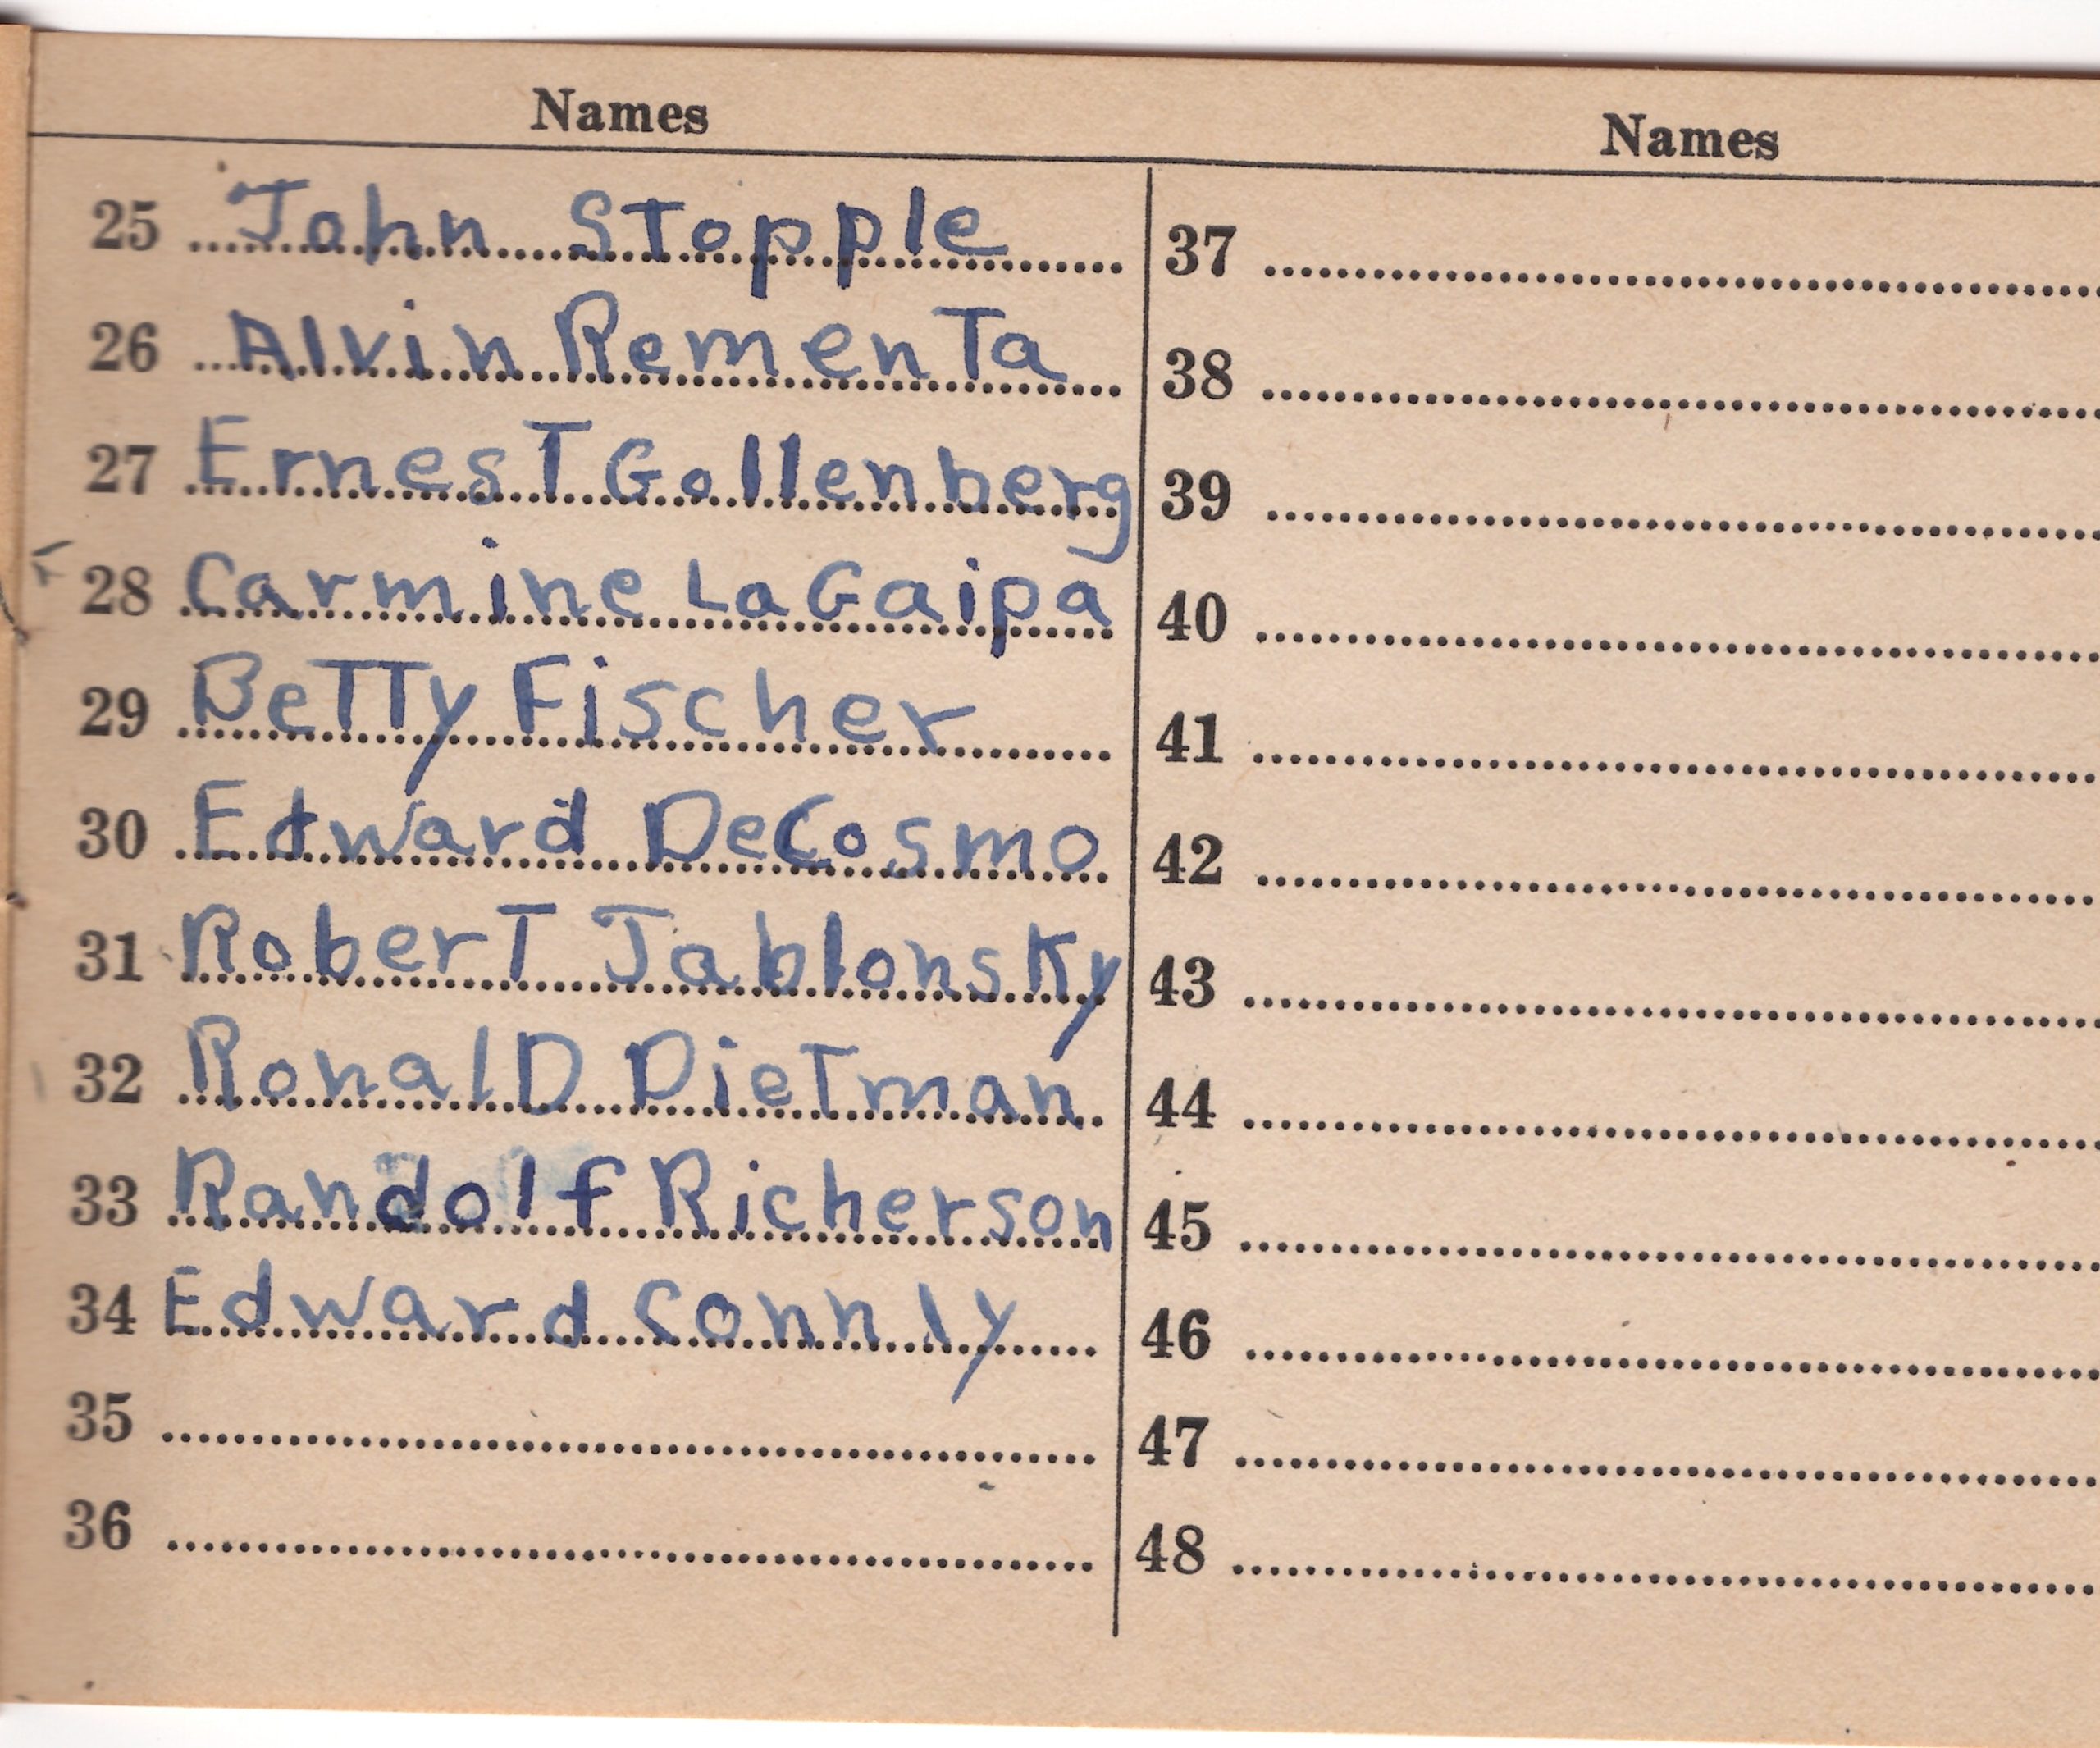 Names
25 John Stopple
26 Alvin Rementa
27 Ernest Gollenberg
28 Carmine LaGaipa
29 Betty Fischer
30 Edward DeCosmo
31 Robert Jablonsky
32 RonalD Dietman
33 Randolf Richerson
34 Edward Connly
35
36
Names
37
38
39
40
41
42
43
44
45
46
47
48